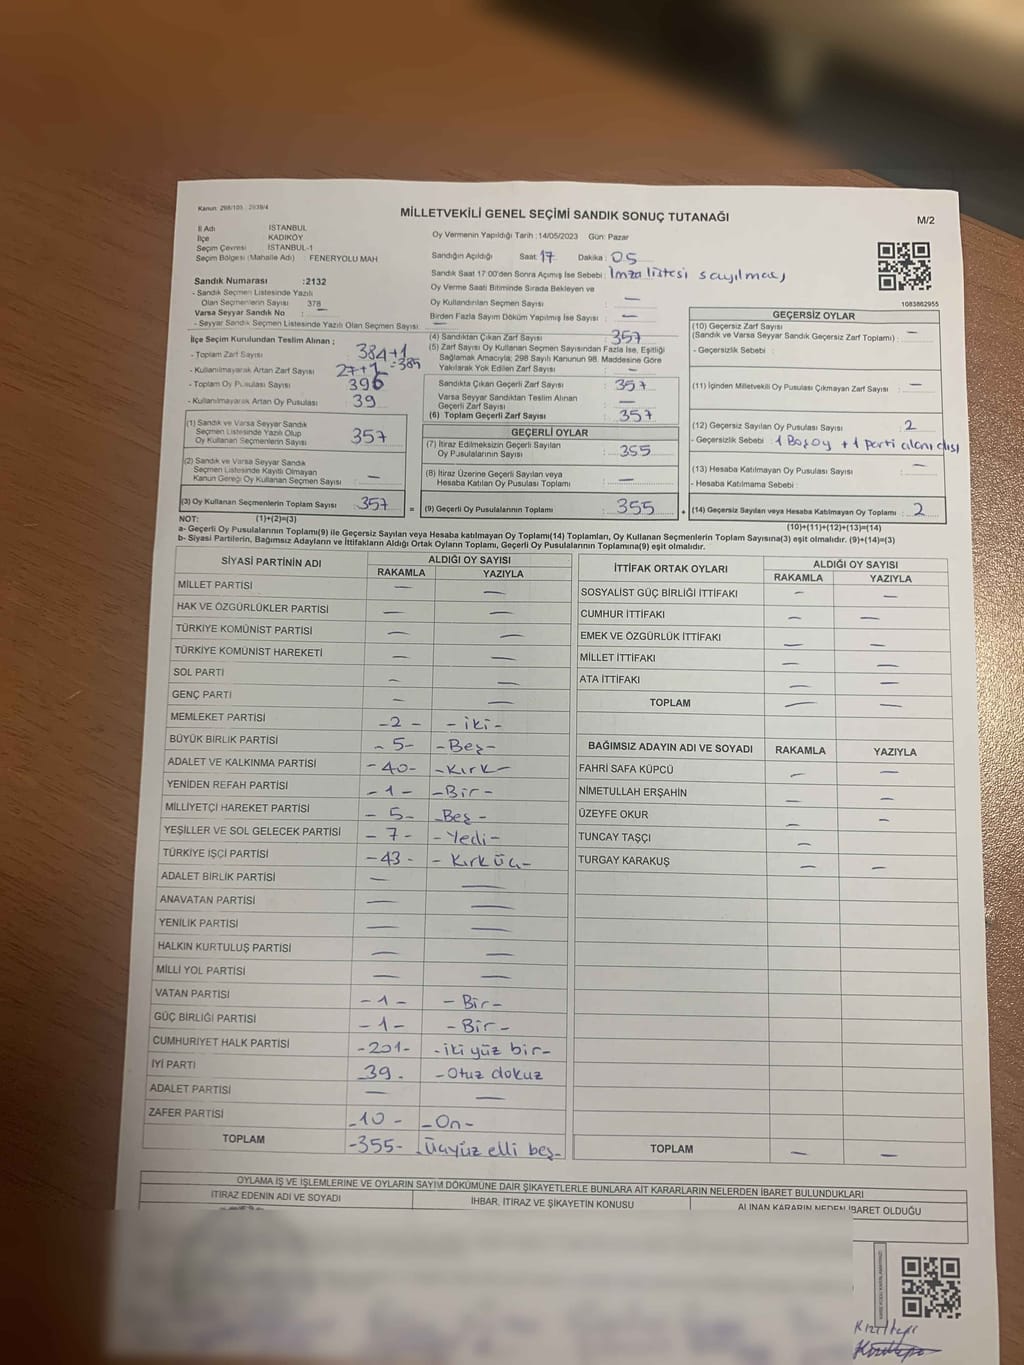 Kanun: 298/105 : 2839/4
MİLLETVEKİLİ GENEL SEÇİMİ SANDIK SONUÇ TUTANAĞI
M/2
İl Adı İSTANBUL
İlçe KADIKÖY
Seçim Çevresi İSTANBUL-1
Seçim Bölgesi (Mahalle Adı) : FENERYOLU MAH
Oy Vermenin Yapıldığı Tarih : 14/05/2023 Gün: Pazar
Sandığın Açıldığı Saat : 17 Dakika : 05
Sandık Saat 17:00'den Sonra Açımış İse Sebebi : İmza listesi sayılması
Oy Verme Saati Bitiminde Sırada Bekleyen ve
Oy Kullandırılan Seçmen Sayısı : —
Birden Fazla Sayım Döküm Yapılmış İse Sayısı : —
1083862955
Sandık Numarası :2132
- Sandık Seçmen Listesinde Yazılı
Olan Seçmenlerin Sayısı 378
Varsa Seyyar Sandık No : —
- Seyyar Sandık Seçmen Listesinde Yazılı Olan Seçmen Sayısı : —
İlçe Seçim Kurulundan Teslim Alınan ;
- Toplam Zarf Sayısı 384+1 =385
- Kullanılmayarak Artan Zarf Sayısı 27+1
- Toplam Oy Pusulası Sayısı 396
- Kullanılmayarak Artan Oy Pusulası 39
(1) Sandık ve Varsa Seyyar Sandık
Seçmen Listesinde Yazılı Olup
Oy Kullanan Seçmenlerin Sayısı 357
(2) Sandık ve Varsa Seyyar Sandık
Seçmen Listesinde Kayıtlı Olmayan
Kanun Gereği Oy Kullanan Seçmen Sayısı : —
(3) Oy Kullanan Seçmenlerin Toplam Sayısı 357
(4) Sandıktan Çıkan Zarf Sayısı : 357
(5) Zarf Sayısı Oy Kullanan Seçmen Sayısından Fazla İse, Eşitliği
Sağlamak Amacıyla; 298 Sayılı Kanunun 98. Maddesine Göre
Yakılarak Yok Edilen Zarf Sayısı : —
Sandıkta Çıkan Geçerli Zarf Sayısı : 357
Varsa Seyyar Sandıktan Teslim Alınan
Geçerli Zarf Sayısı : —
(6) Toplam Geçerli Zarf Sayısı : 357
GEÇERLİ OYLAR
(7) İtiraz Edilmeksizin Geçerli Sayılan
Oy Pusulalarının Sayısı : 355
(8) İtiraz Üzerine Geçerli Sayılan veya
Hesaba Katılan Oy Pusulası Toplamı : —
= (9) Geçerli Oy Pusulalarının Toplamı : 355
GEÇERSİZ OYLAR
(10) Geçersiz Zarf Sayısı
(Sandık ve Varsa Seyyar Sandık Geçersiz Zarf Toplamı) : —
- Geçersizlik Sebebi :
(11) İçinden Milletvekili Oy Pusulası Çıkmayan Zarf Sayısı : —
(12) Geçersiz Sayılan Oy Pusulası Sayısı : 2
- Geçersizlik Sebebi : 1 Boş oy + 1 parti alanı dışı
(13) Hesaba Katılmayan Oy Pusulası Sayısı : —
- Hesaba Katılmama Sebebi :
+ (14) Geçersiz Sayılan veya Hesaba Katılmayan Oy Toplamı : 2
NOT: (1)+(2)=(3) (10)+(11)+(12)+(13)=(14)
a- Geçerli Oy Pusulalarının Toplamı(9) ile Geçersiz Sayılan veya Hesaba katılmayan Oy Toplamı(14) Toplamları, Oy Kullanan Seçmenlerin Toplam Sayısına(3) eşit olmalıdır. (9)+(14)=(3)
b- Siyasi Partilerin, Bağımsız Adayların ve İttifakların Aldığı Ortak Oyların Toplamı, Geçerli Oy Pusulalarının Toplamına(9) eşit olmalıdır.
SİYASİ PARTİNİN ADI ALDIĞI OY SAYISI
RAKAMLA YAZIYLA
MİLLET PARTİSİ — —
HAK VE ÖZGÜRLÜKLER PARTİSİ — —
TÜRKİYE KOMÜNİST PARTİSİ — —
TÜRKİYE KOMÜNİST HAREKETİ — —
SOL PARTİ — —
GENÇ PARTİ — —
MEMLEKET PARTİSİ -2- -iki-
BÜYÜK BİRLİK PARTİSİ -5- -Beş-
ADALET VE KALKINMA PARTİSİ -40- -Kırk-
YENİDEN REFAH PARTİSİ -1- -Bir-
MİLLİYETÇİ HAREKET PARTİSİ -5- -Beş-
YEŞİLLER VE SOL GELECEK PARTİSİ -7- -Yedi-
TÜRKİYE İŞÇİ PARTİSİ -43- -Kırk üç-
ADALET BİRLİK PARTİSİ — —
ANAVATAN PARTİSİ — —
YENİLİK PARTİSİ — —
HALKIN KURTULUŞ PARTİSİ — —
MİLLİ YOL PARTİSİ — —
VATAN PARTİSİ -1- -Bir-
GÜÇ BİRLİĞİ PARTİSİ -1- -Bir-
CUMHURİYET HALK PARTİSİ -201- -iki yüz bir-
İYİ PARTİ -39- -Otuz dokuz
ADALET PARTİSİ — —
ZAFER PARTİSİ -10- -On-
TOPLAM -355- -Üçyüz elli beş-
İTTİFAK ORTAK OYLARI ALDIĞI OY SAYISI
RAKAMLA YAZIYLA
SOSYALİST GÜÇ BİRLİĞİ İTTİFAKI — —
CUMHUR İTTİFAKI — —
EMEK VE ÖZGÜRLÜK İTTİFAKI — —
MİLLET İTTİFAKI — —
ATA İTTİFAKI — —
TOPLAM — —
BAĞIMSIZ ADAYIN ADI VE SOYADI RAKAMLA YAZIYLA
FAHRİ SAFA KÜPCÜ — —
NİMETULLAH ERŞAHİN — —
ÜZEYFE OKUR — —
TUNCAY TAŞÇI —
TURGAY KARAKUŞ — —
TOPLAM — —
OYLAMA İŞ VE İŞLEMLERİNE VE OYLARIN SAYIM DÖKÜMÜNE DAİR ŞİKAYETLERLE BUNLARA AİT KARARLARIN NELERDEN İBARET BULUNDUKLARI
İTİRAZ EDENİN ADI VE SOYADI İHBAR, İTİRAZ VE ŞİKAYETİN KONUSU ALINAN KARARIN NEDEN İBARET OLDUĞU